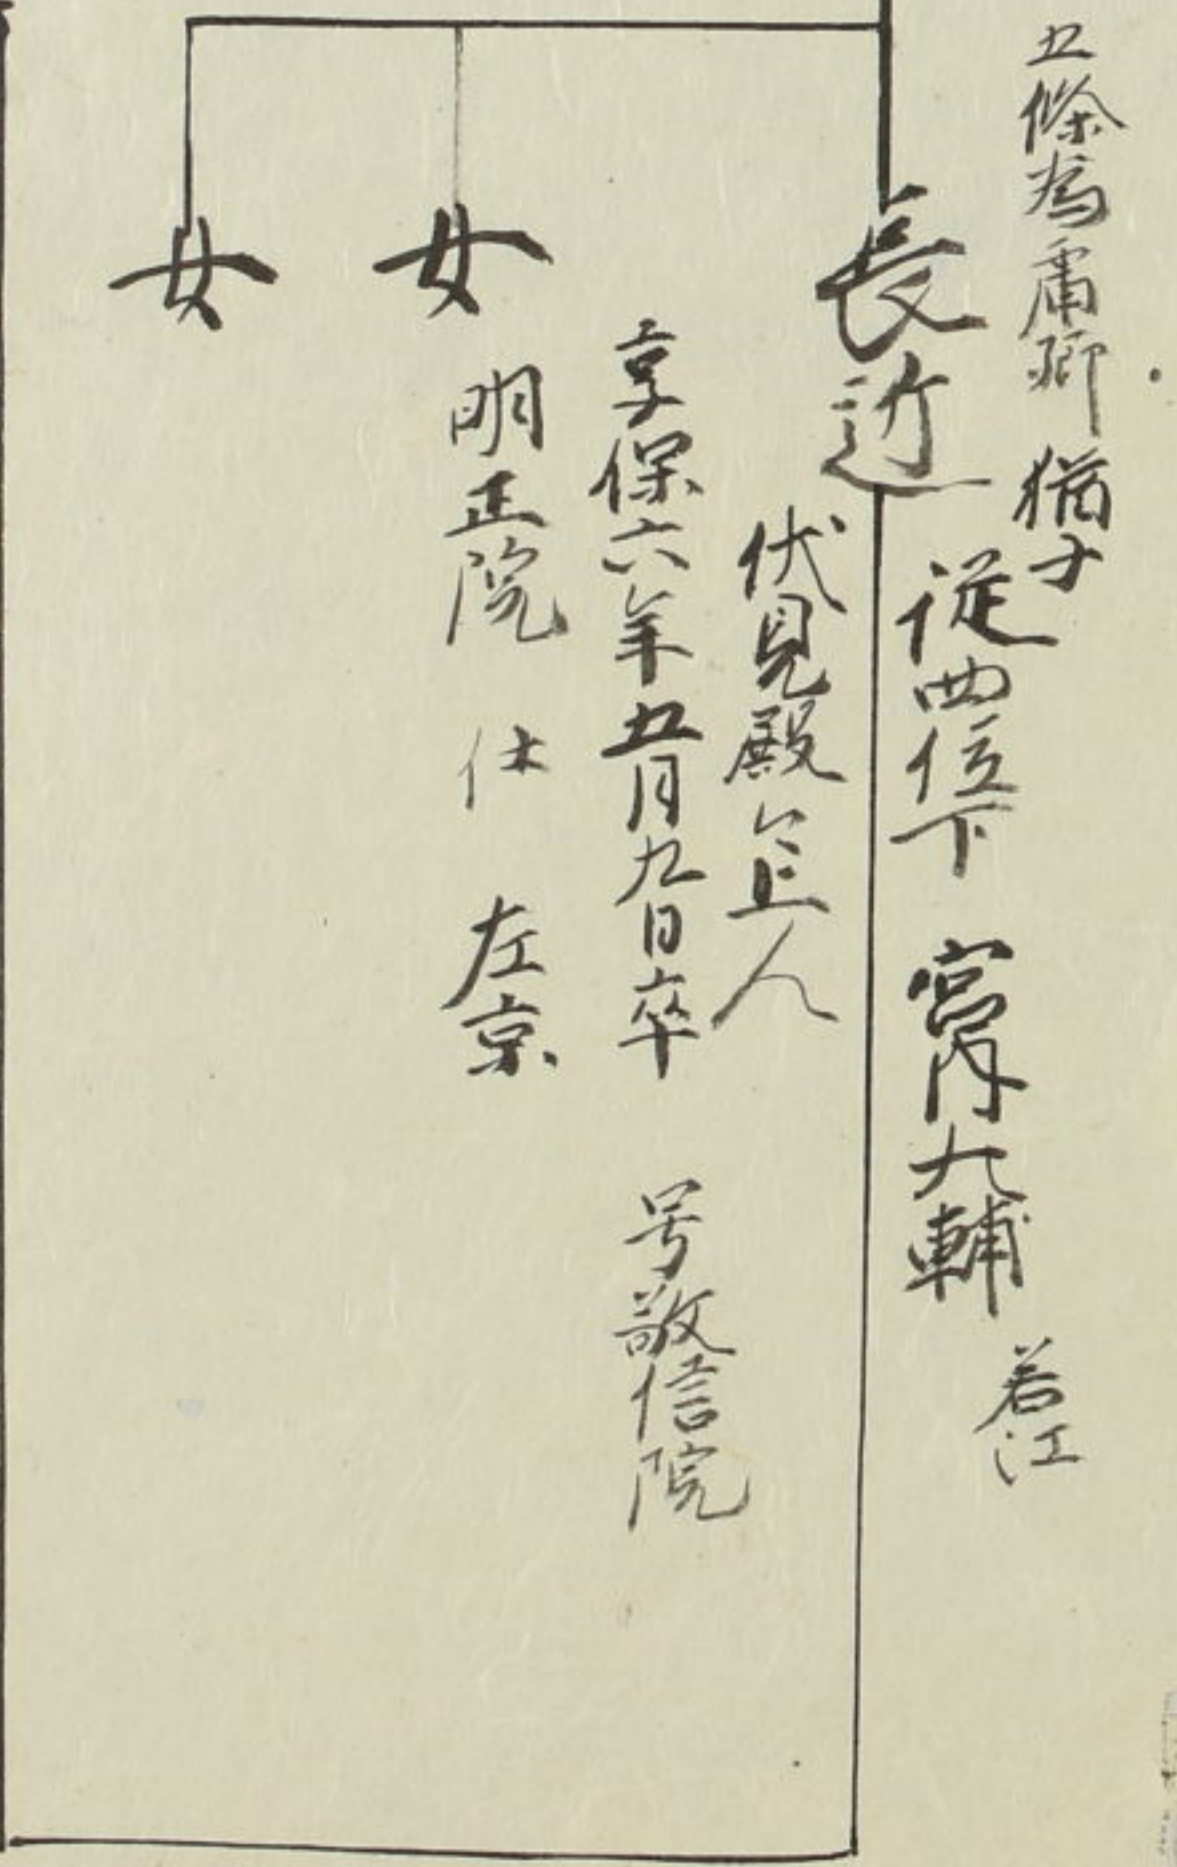 五條為庸卿 猶子
長近
従四位下 宮内大輔 若江
伏見殿
享保六年五月九日卒 号敬信院
女
明正院 左京
女